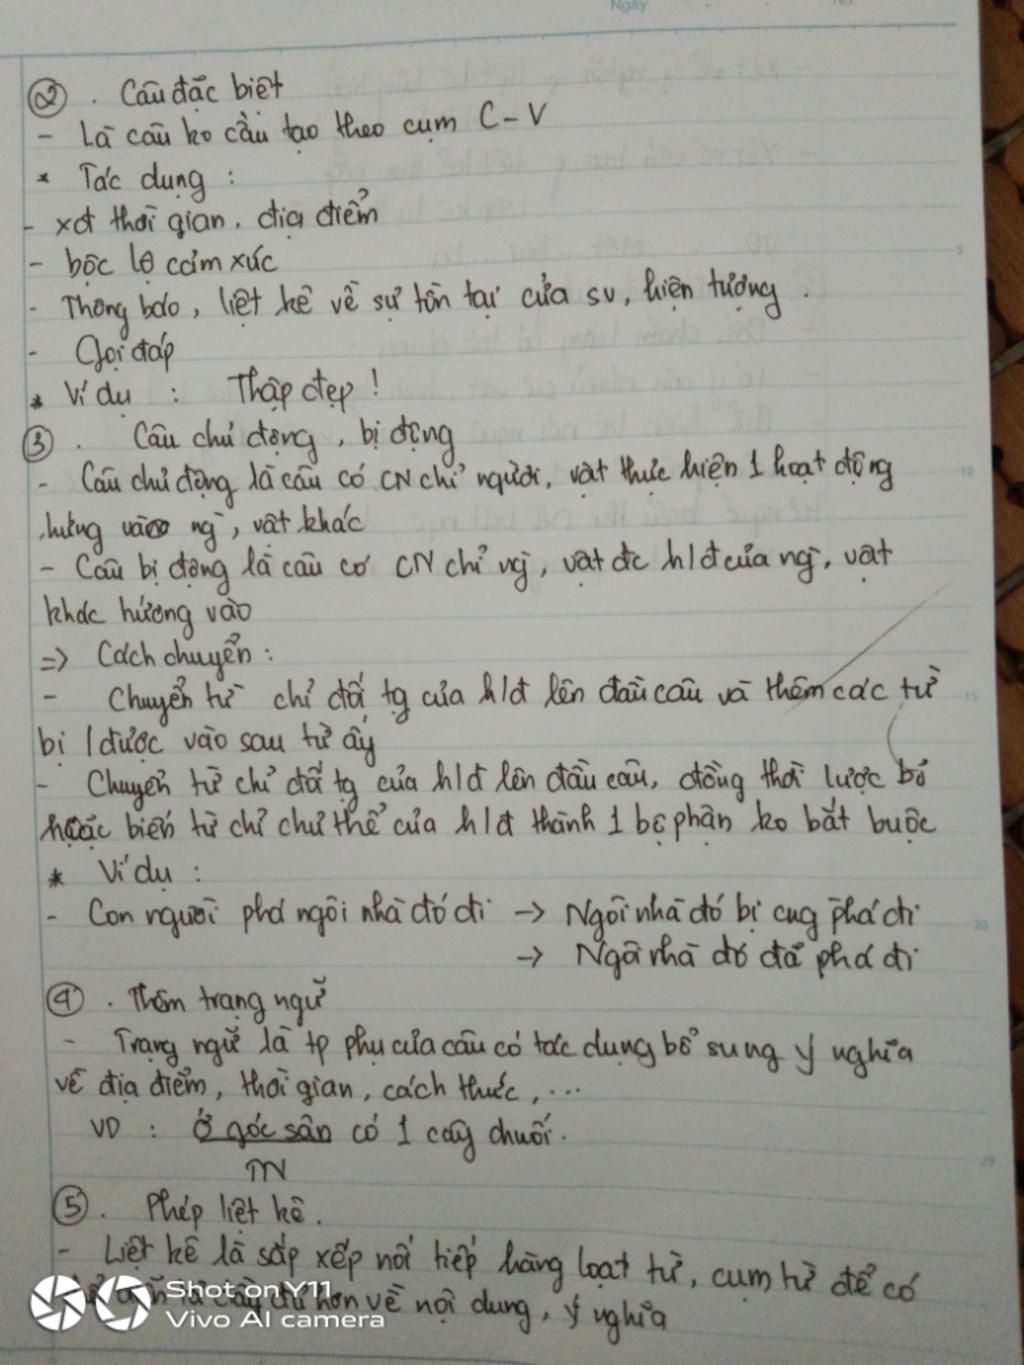 Ngày No.
② . Câu đặc biệt
- Là câu ko cấu tạo theo cụm C-V
* Tác dụng :
- xđ thời gian, địa điểm
- bộc lộ cảm xúc
- Thông báo, liệt kê về sự tồn tại của sv, hiện tượng .
- Gọi đáp
* Ví dụ : Thập đẹp !
③ . Câu chủ động , bị động
- Câu chủ động là câu có CN chỉ người, vật thực hiện 1 hoạt động
hướng vào ng`, vật khác
- Câu bị động là câu có CN chỉ ng`, vật đc h/đ của ng`, vật
khác hướng vào
=> Cách chuyển :
- Chuyển từ chỉ đối tg của h/đ lên đầu câu và thêm các từ
bị / được vào sau từ ấy
- Chuyển từ chỉ đối tg của h/đ lên đầu câu, đồng thời lược bỏ
hoặc biến từ chỉ chủ thể của h/đ thành 1 bộ phận ko bắt buộc
* Ví dụ :
- Con người phá ngôi nhà đó đi -> Ngôi nhà đó bị phá đi
-> Ngôi nhà đó đã phá đi
④ . Thêm trạng ngữ
- Trạng ngữ là tp phụ của câu có tác dụng bổ sung ý nghĩa
về địa điểm, thời gian, cách thức, ...
VD : Ở góc sân có 1 cây chuối.
TN
⑤ . Phép liệt kê .
- Liệt kê là sắp xếp nối tiếp hàng loạt từ, cụm từ để có
đủ hơn về nội dung, ý nghĩa
Shot on Y11
Vivo AI camera